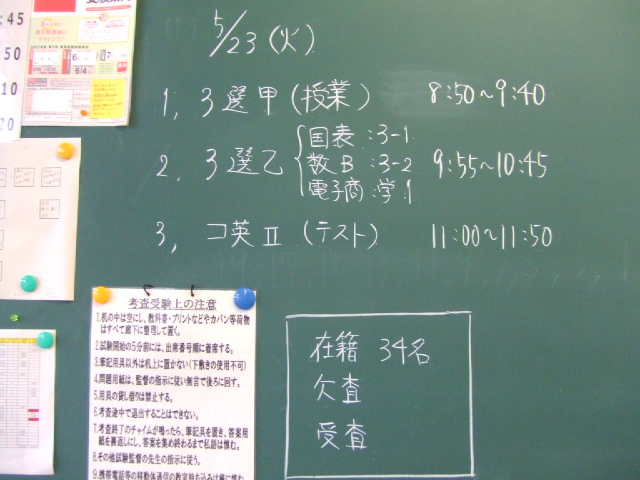 5/23(火)
1, 3選甲(授業) 8:50~9:40
2, 3選乙 9:55~10:45
国表:3-1
数B:3-2
電子商:学1
3, コ英II (テスト) 11:00~11:50
在籍 34名
欠査
受査
考査受験上の注意
1.机の中は空にし、教科書・プリントなどやカバン等荷物
はすべて廊下に整理して置く。
2.試験開始の5分前には、出席番号順に着席する。
3.筆記用具以外は机上に置かない(下敷きの使用不可)
4.問題用紙は、監督の指示に従い無言で後ろに回す。
5.用具の貸し借りは禁止する。
6.考査途中で退出することはできない。
7.考査終了のチャイムが鳴ったら、筆記具を置き、答案用
紙を裏返しにし、答案を集め終わるまで私語は慎む。
8.その他試験監督の先生の指示に従う。
9.携帯電話等の移動体通信の教室持ち込みは厳に慎む
:45
50
10
20
6/4